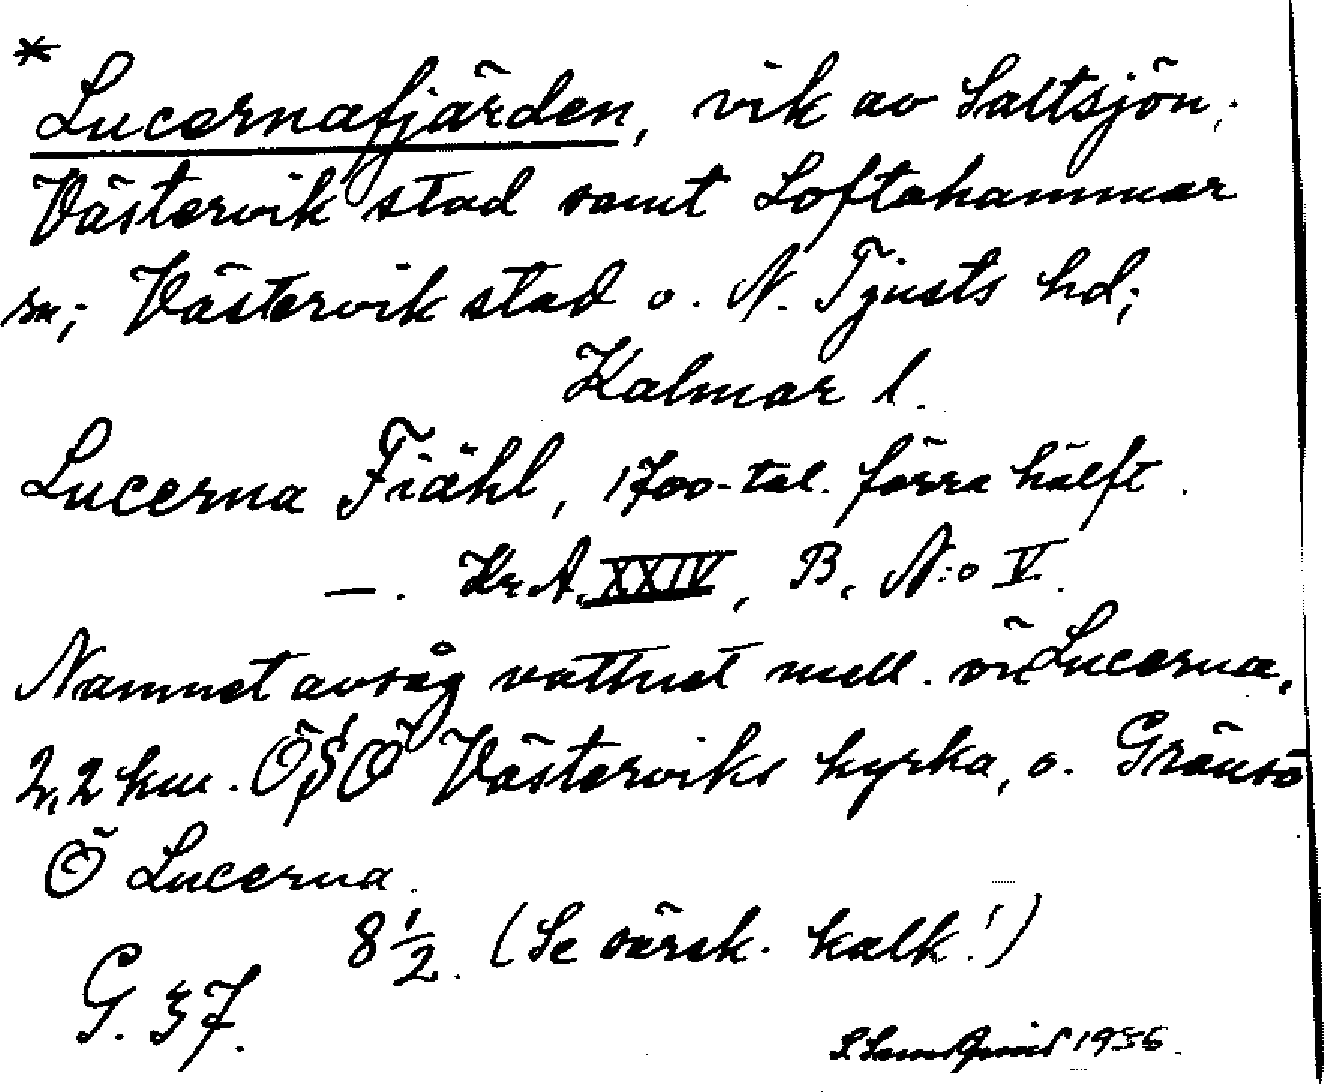 * Lucernafjärden, vik av Saltsjön;
Västervik stad samt Loftahammar
sn; Västervik stad o. N. Tjusts hd;
Kalmar l.
Lucerna Fiähl, 1700-tal. förra hälft.
—. Kr. A. XXIV, B, N:o V.
Namnet avsåg vattnet mell. ön Lucerna,
2,2 km. ÖSÖ Västerviks kyrka, o. Gränsö
Ö Lucerna.
8 1/2. (Se särsk. kalk!)
G. 37.
1936.